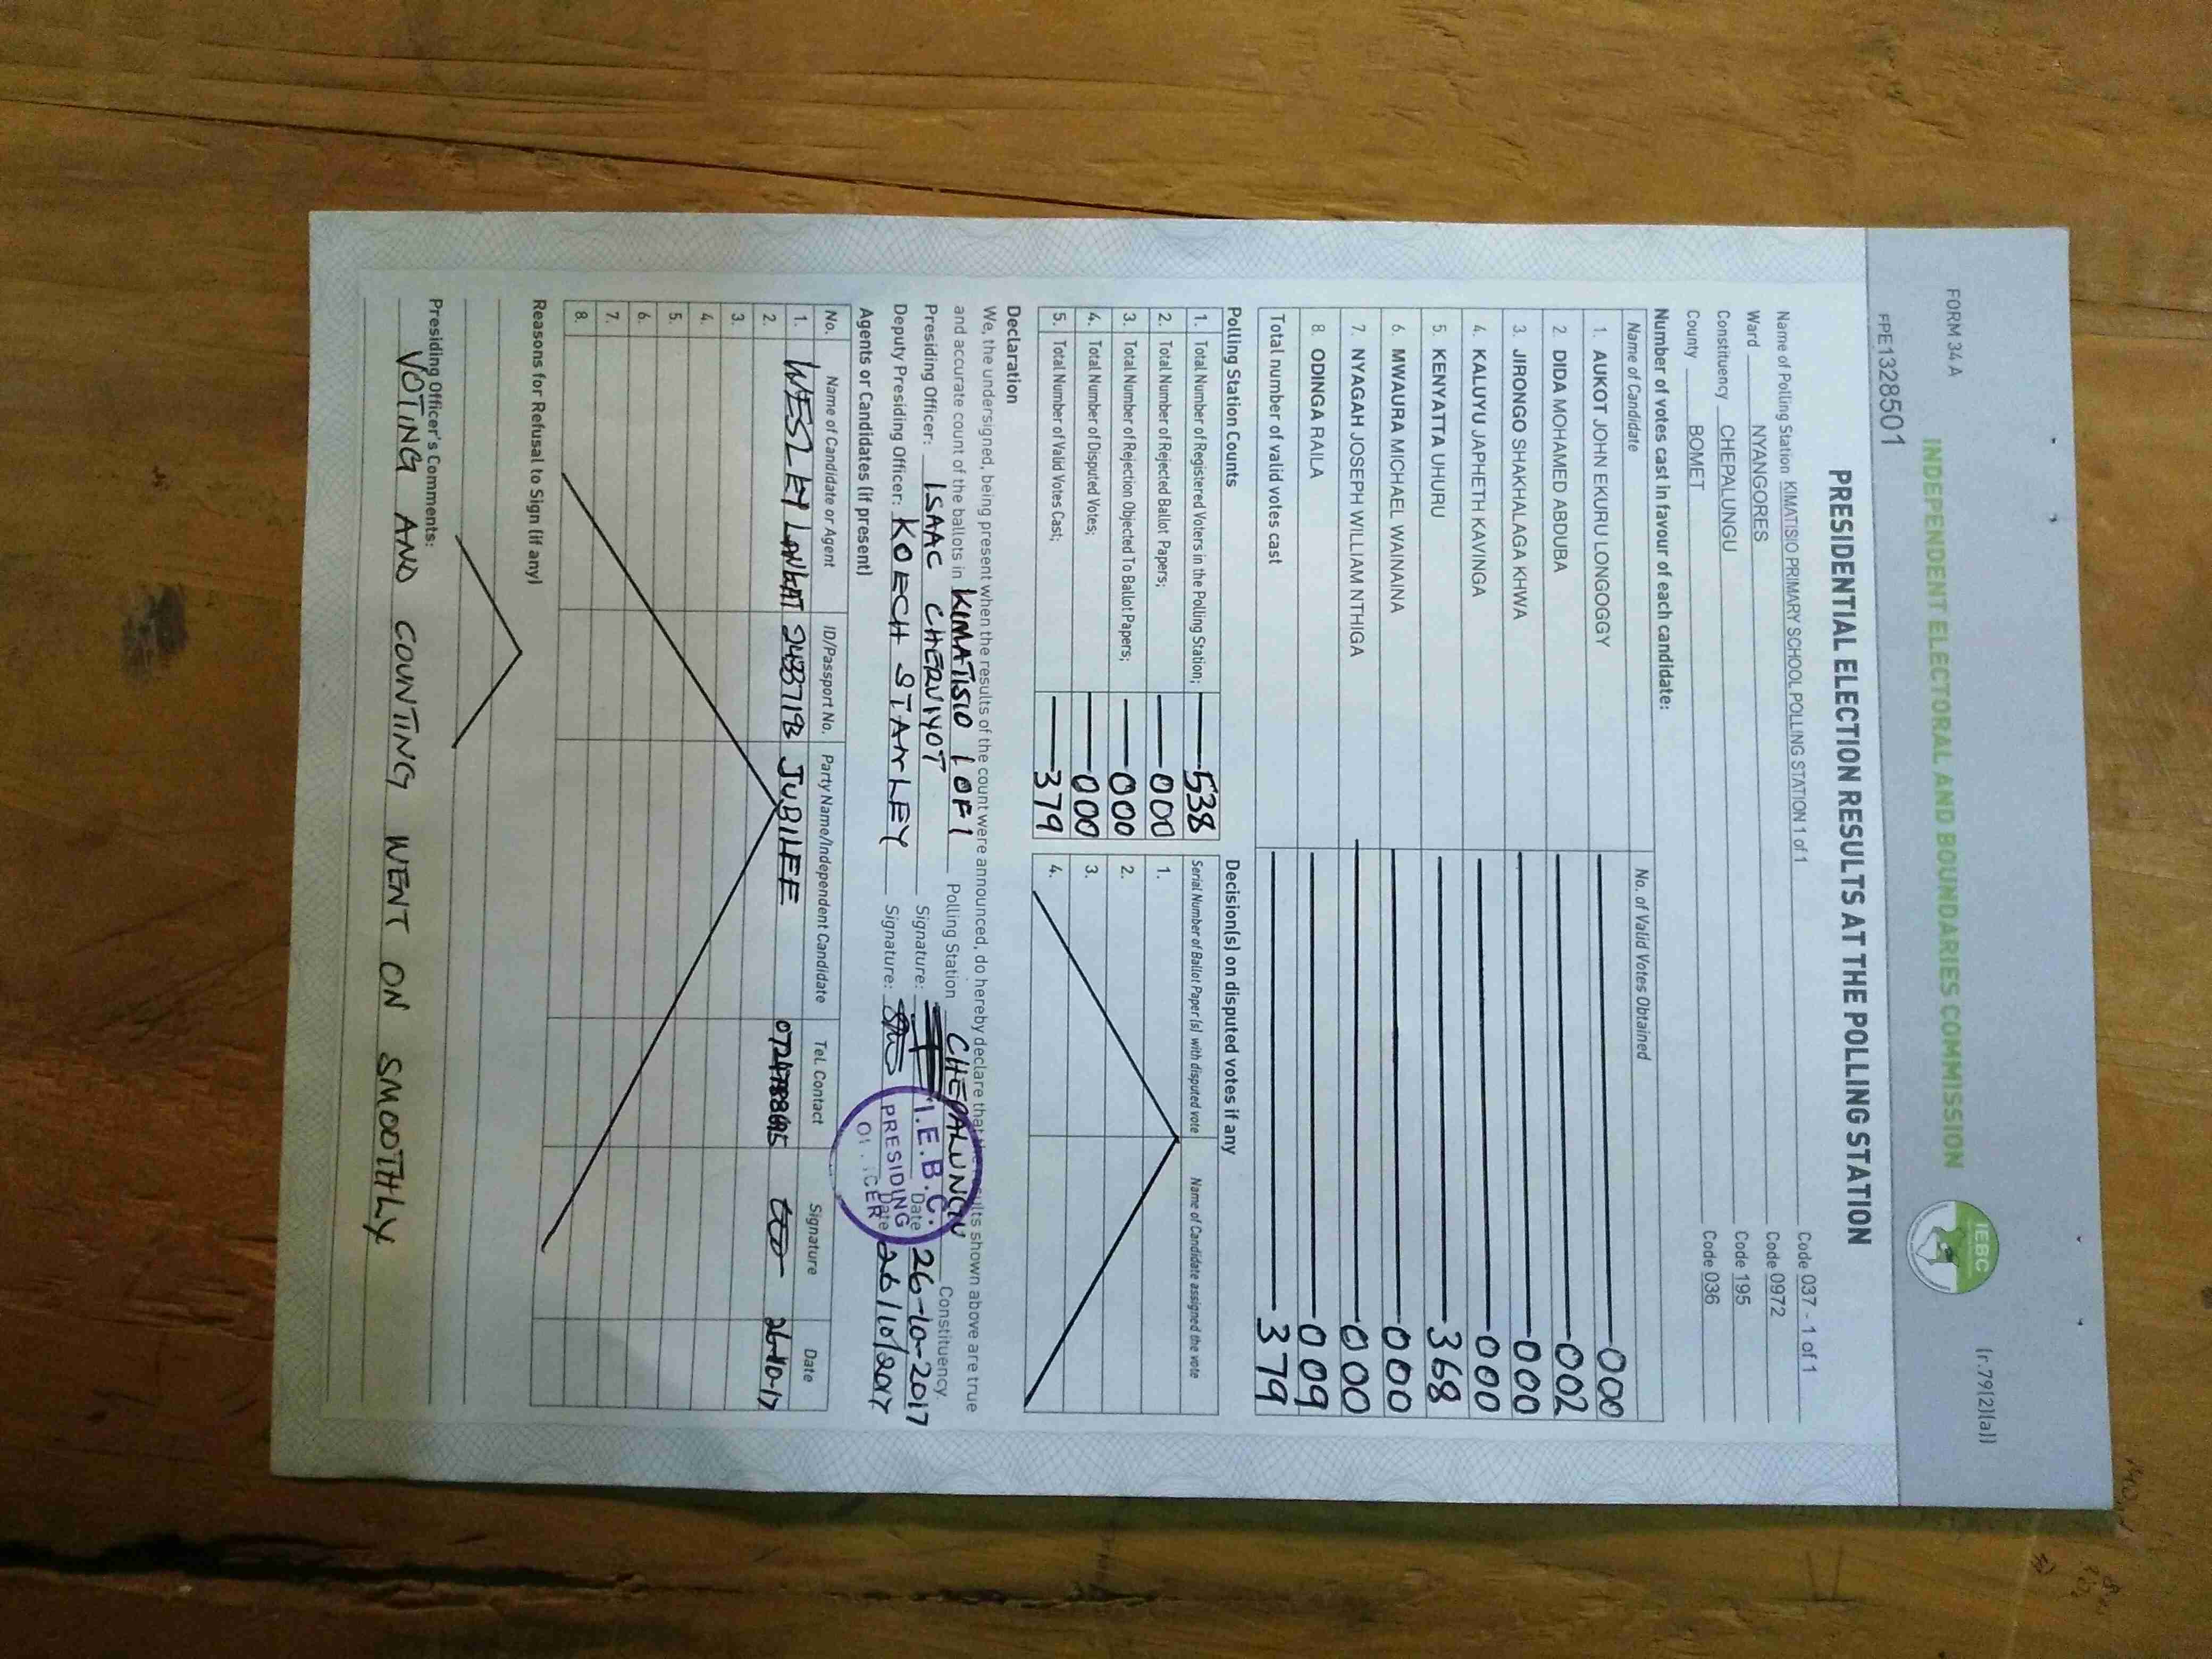 FORM 34A
(r.79(2)(a))
INDEPENDENT ELECTORAL AND BOUNDARIES COMMISSION
IEBC
FPE1328501
PRESIDENTIAL ELECTION RESULTS AT THE POLLING STATION
Name of Polling Station KIMATISIO PRIMARY SCHOOL POLLING STATION 1 of 1 Code 037 - 1 of 1
Ward NYANGORES Code 0972
Constituency CHEPALUNGU Code 195
County BOMET Code 036
Number of votes cast in favour of each candidate:
Name of Candidate No. of Valid Votes Obtained
1. AUKOT JOHN EKURU LONGOGGY 000
2. DIDA MOHAMED ABDUBA 002
3. JIRONGO SHAKHALAGA KHWA 000
4. KALUYU JAPHETH KAVINGA 000
5. KENYATTA UHURU 368
6. MWAURA MICHAEL WAINAINA 000
7. NYAGAH JOSEPH WILLIAM NTHIGA 000
8. ODINGA RAILA 009
Total number of valid votes cast 379
Polling Station Counts Decision(s) on disputed votes if any
1. Total Number of Registered Voters in the Polling Station; 538 Serial Number of Ballot Paper (s) with disputed vote Name of Candidate assigned the vote
2. Total Number of Rejected Ballot Papers; 000 1.
3. Total Number of Rejection Objected To Ballot Papers; 000 2.
4. Total Number of Disputed Votes; 000 3.
5. Total Number of Valid Votes Cast; 379 4.
Declaration
We, the undersigned, being present when the results of the count were announced, do hereby declare that the results shown above are true
and accurate count of the ballots in KIMATISIO 1 OF 1 Polling Station CHEPALUNGU Constituency.
Presiding Officer: ISAAC CHERUIYOT Signature: Date 26-10-2017
Deputy Presiding Officer: KOECH STANLEY Signature: Date 26/10/2017
I.E.B.C.
PRESIDING
OFFICER
Agents or Candidates (if present)
No. Name of Candidate or Agent ID/Passport No. Party Name/Independent Candidate Tel. Contact Signature Date
1. WESLEY LANGAT JUBILEE 26-10-17
2.
3.
4.
5.
6.
7.
8.
Reasons for Refusal to Sign (if any)
Presiding Officer's Comments:
VOTING AND COUNTING WENT ON SMOOTHLY